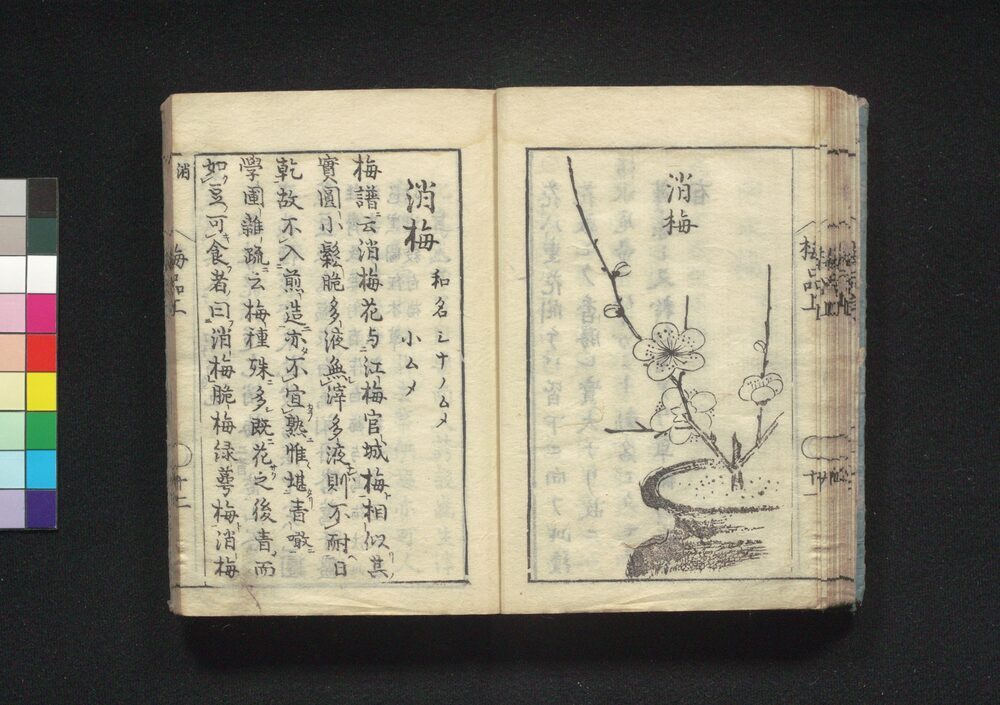 消梅
梅品上
十一
消梅
和名シナノムメ
小ムメ
梅譜云消梅花与江梅官城梅相似其
實圓小鬆脆多液無滓多液則不耐日
乾故不入煎造亦不宜熟惟堪青噉
学圃雜疏云梅種殊多既花之後青而
如豆可食者曰消梅脆梅緑萼梅消梅
消
梅品上
十二